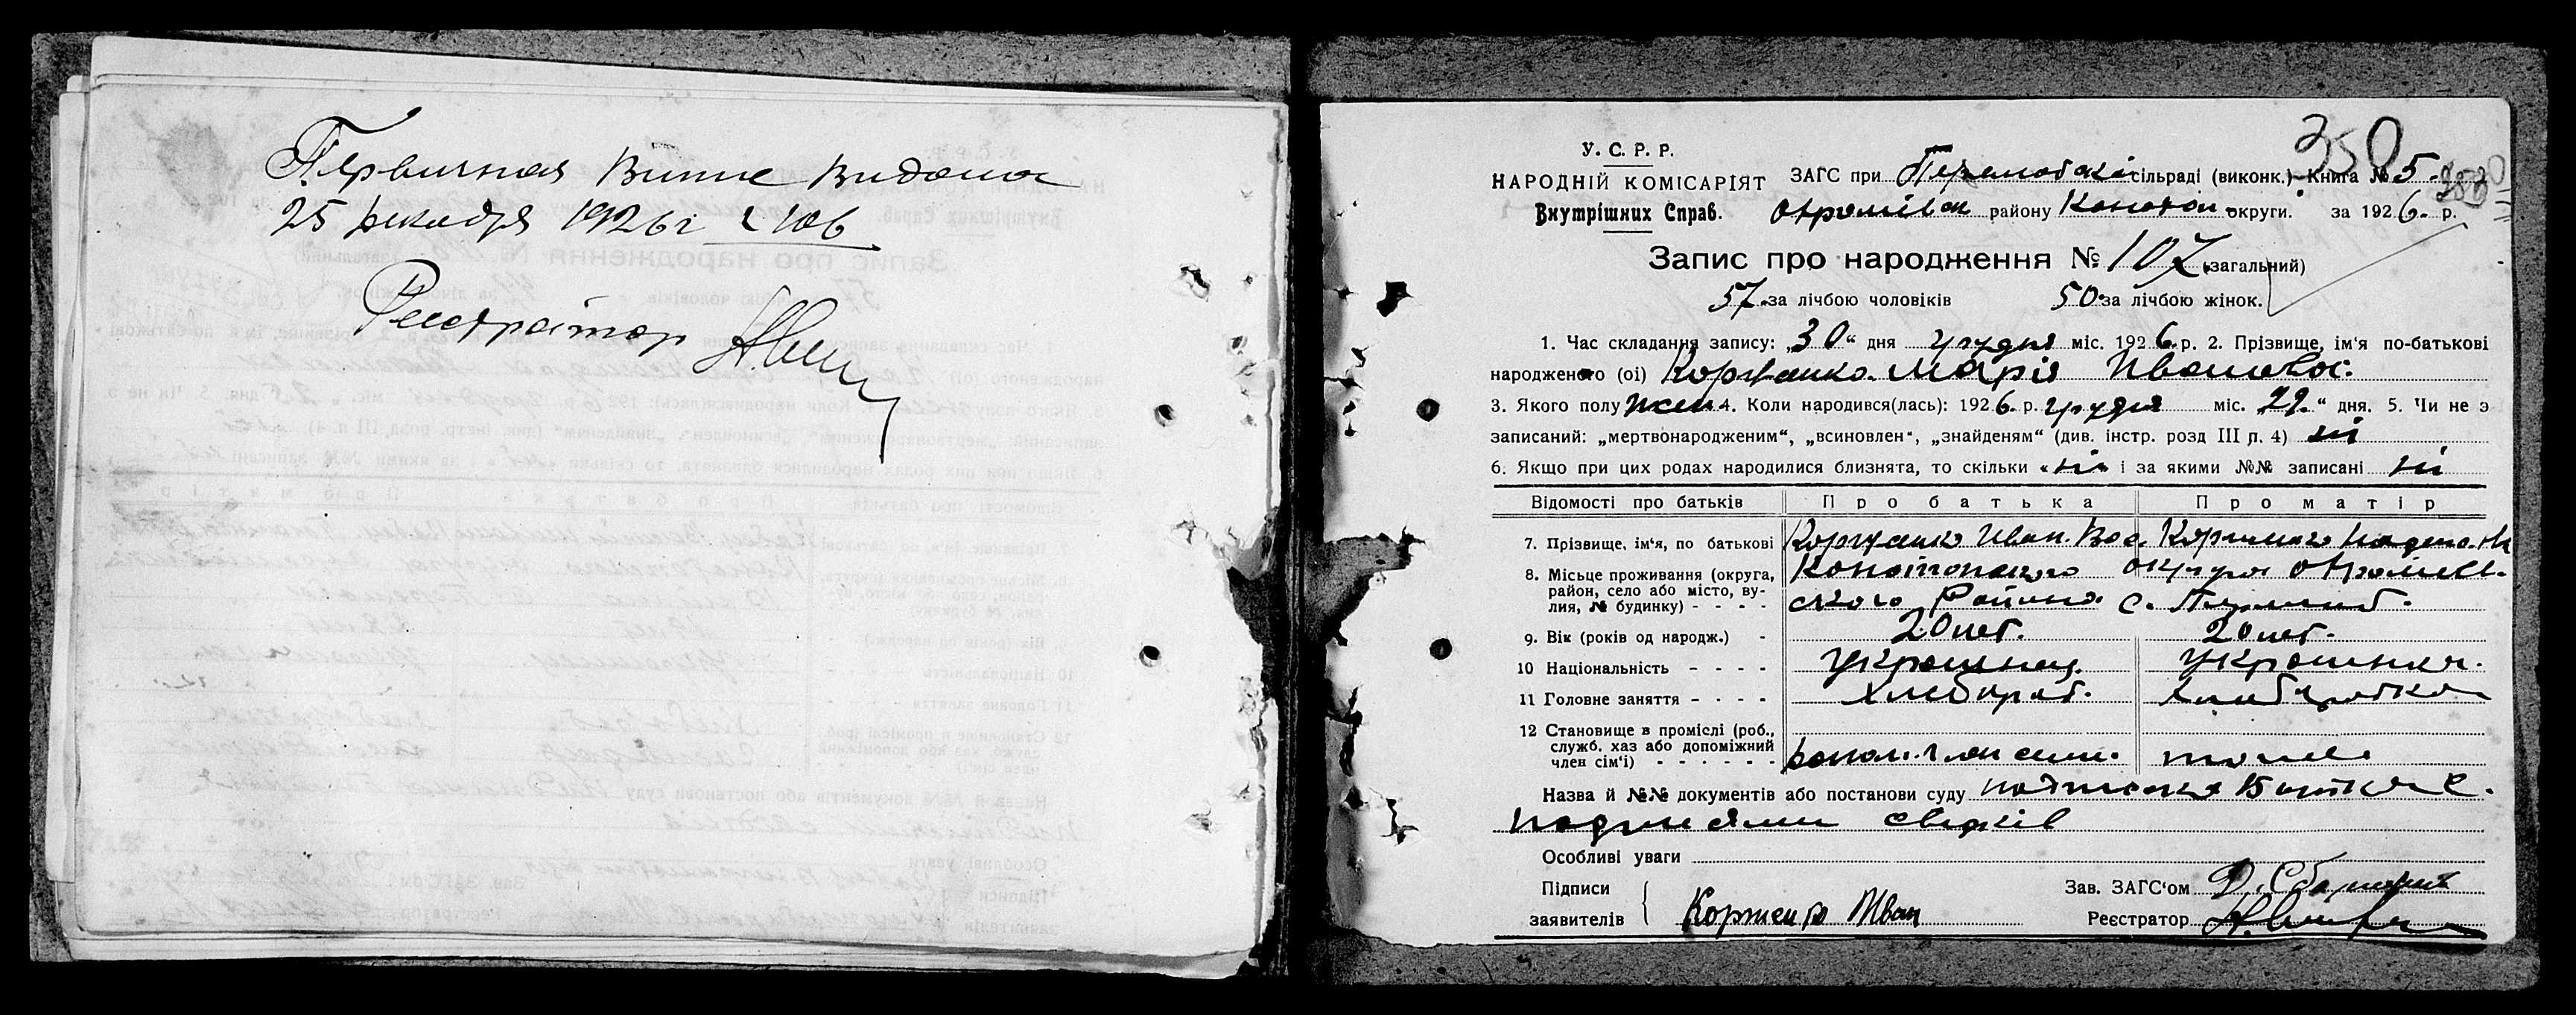 Первичная випис видана
25 декабря 1926 г № 106
Реєстратор
350
У. С. Р. Р.
НАРОДНІЙ КОМІСАРІЯТ
Внутрішних Справ.
ЗАГС при сільраді (виконк.) Книга № 5.
району Конотоп. округи. за 1926. р.
Запис про народження № 107 (загальний)
57 за лічбою чоловіків 50 за лічбою жінок.
1. Час складання запису: „30“ дня грудня міс. 1926 р. 2. Прізвище, ім'я по-батькові
народженого (ої) Корженко Марія Ивановна.
3. Якого полу жен. 4. Коли народився(лась): 1926. р. грудня міс. „29.“ дня. 5. Чи не э
записаний: „мертвонародженим“, „всиновлен“, „знайденям“ (див. інстр. розд III п. 4) ні
6. Якщо при цих родах народилися близнята, то скільки «ні» і за якими №№ записані ні
Відомості про батьків Про батька Про матір
7. Прізвище, ім'я, по батькові Корженко Иван. Вас. Корженко
8. Місьце проживання (округа, район, село або місто, вулия, № будинку) - - - - Конотопського округи
ского Района с.
9. Вік (років од народж.) - 20 лет. 20 лет.
10 Національність - - - - Украинец. Украинка.
11 Головне заняття - - - - Хлебороб. Хлеборобка
12 Становище в промислі (роб., служб. хаз або допоміжний член сім'ї) - - - - - - допом. член семи. тоже
Назва й №№ документів або постанови суду подписка Батька с.
подписями свідків
Особливі уваги
Підписи
заявителів Корженко Иван
Зав. ЗАГС'ом
Реєстратор